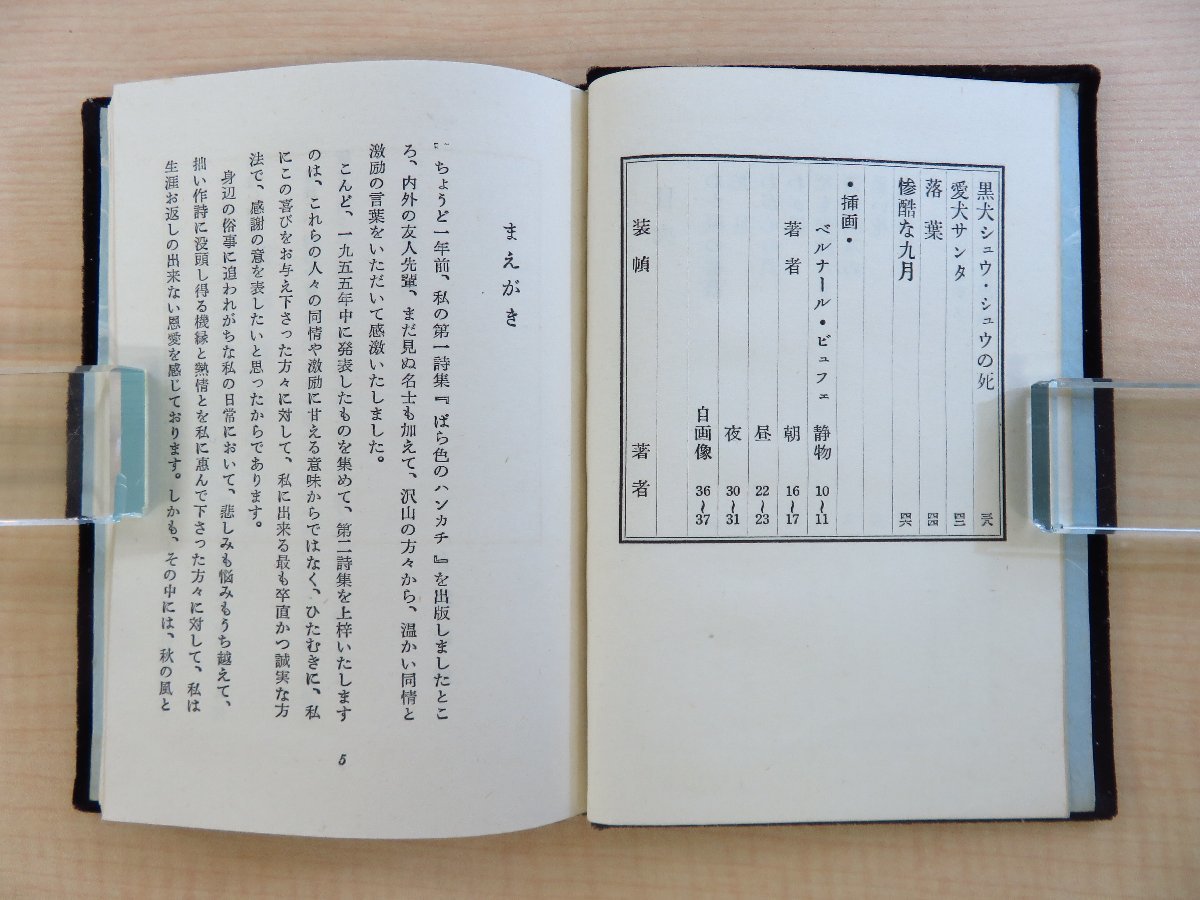 黒犬シュウ・シュウの死 三八
愛犬サンタ 四二
落葉 四四
惨酷な九月 四六
・挿画・
ベルナール・ビュフェ 静物 10〜11
著者 朝 16〜17
昼 22〜23
夜 30〜31
自画像 36〜37
装幀 著者
まえがき
ちょうど一年前、私の第一詩集『ばら色のハンカチ』を出版しましたとこ
ろ、内外の友人先輩、まだ見ぬ名士も加えて、沢山の方々から、温かい同情と
激励の言葉をいただいて感激いたしました。
こんど、一九五五年中に発表したものを集めて、第二詩集を上梓いたします
のは、これらの人々の同情や激励に甘える意味からではなく、ひたむきに、私
にこの喜びをお与え下さった方々に対して、私に出来る最も卒直かつ誠実な方
法で、感謝の意を表したいと思ったからであります。
身辺の俗事に追われがちな私の日常において、悲しみも悩みもうち越えて、
拙い作詩に没頭し得る機縁と熱情とを私に恵んで下さった方々に対して、私は
生涯お返しの出来ない恩愛を感じております。しかも、その中には、秋の風と
5